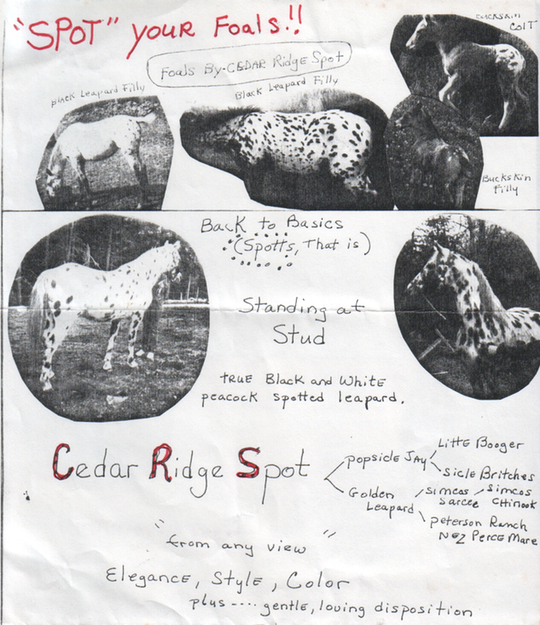 "SPOT" your Foals!!
Foals By-CEDAR Ridge Spot
BUCKSKIN
COLT
pinck Leapard Filly
Black Leapard Filly
Buckskin
Filly
Back to Basics
(Spotts, That is)
Standing at
Stud
true Black and White
peacock spotted leapard.
Cedar Ridge Spot
popside JAY
Litte Booger
Sicle Britches
Golden
Leapard
Simcos
Sarcee
Simcos
Chinook
peterson Ranch
NEZ Perce Mare
"from any view"
Elegance, Style, Color
plus ---- gentle, loving disposition